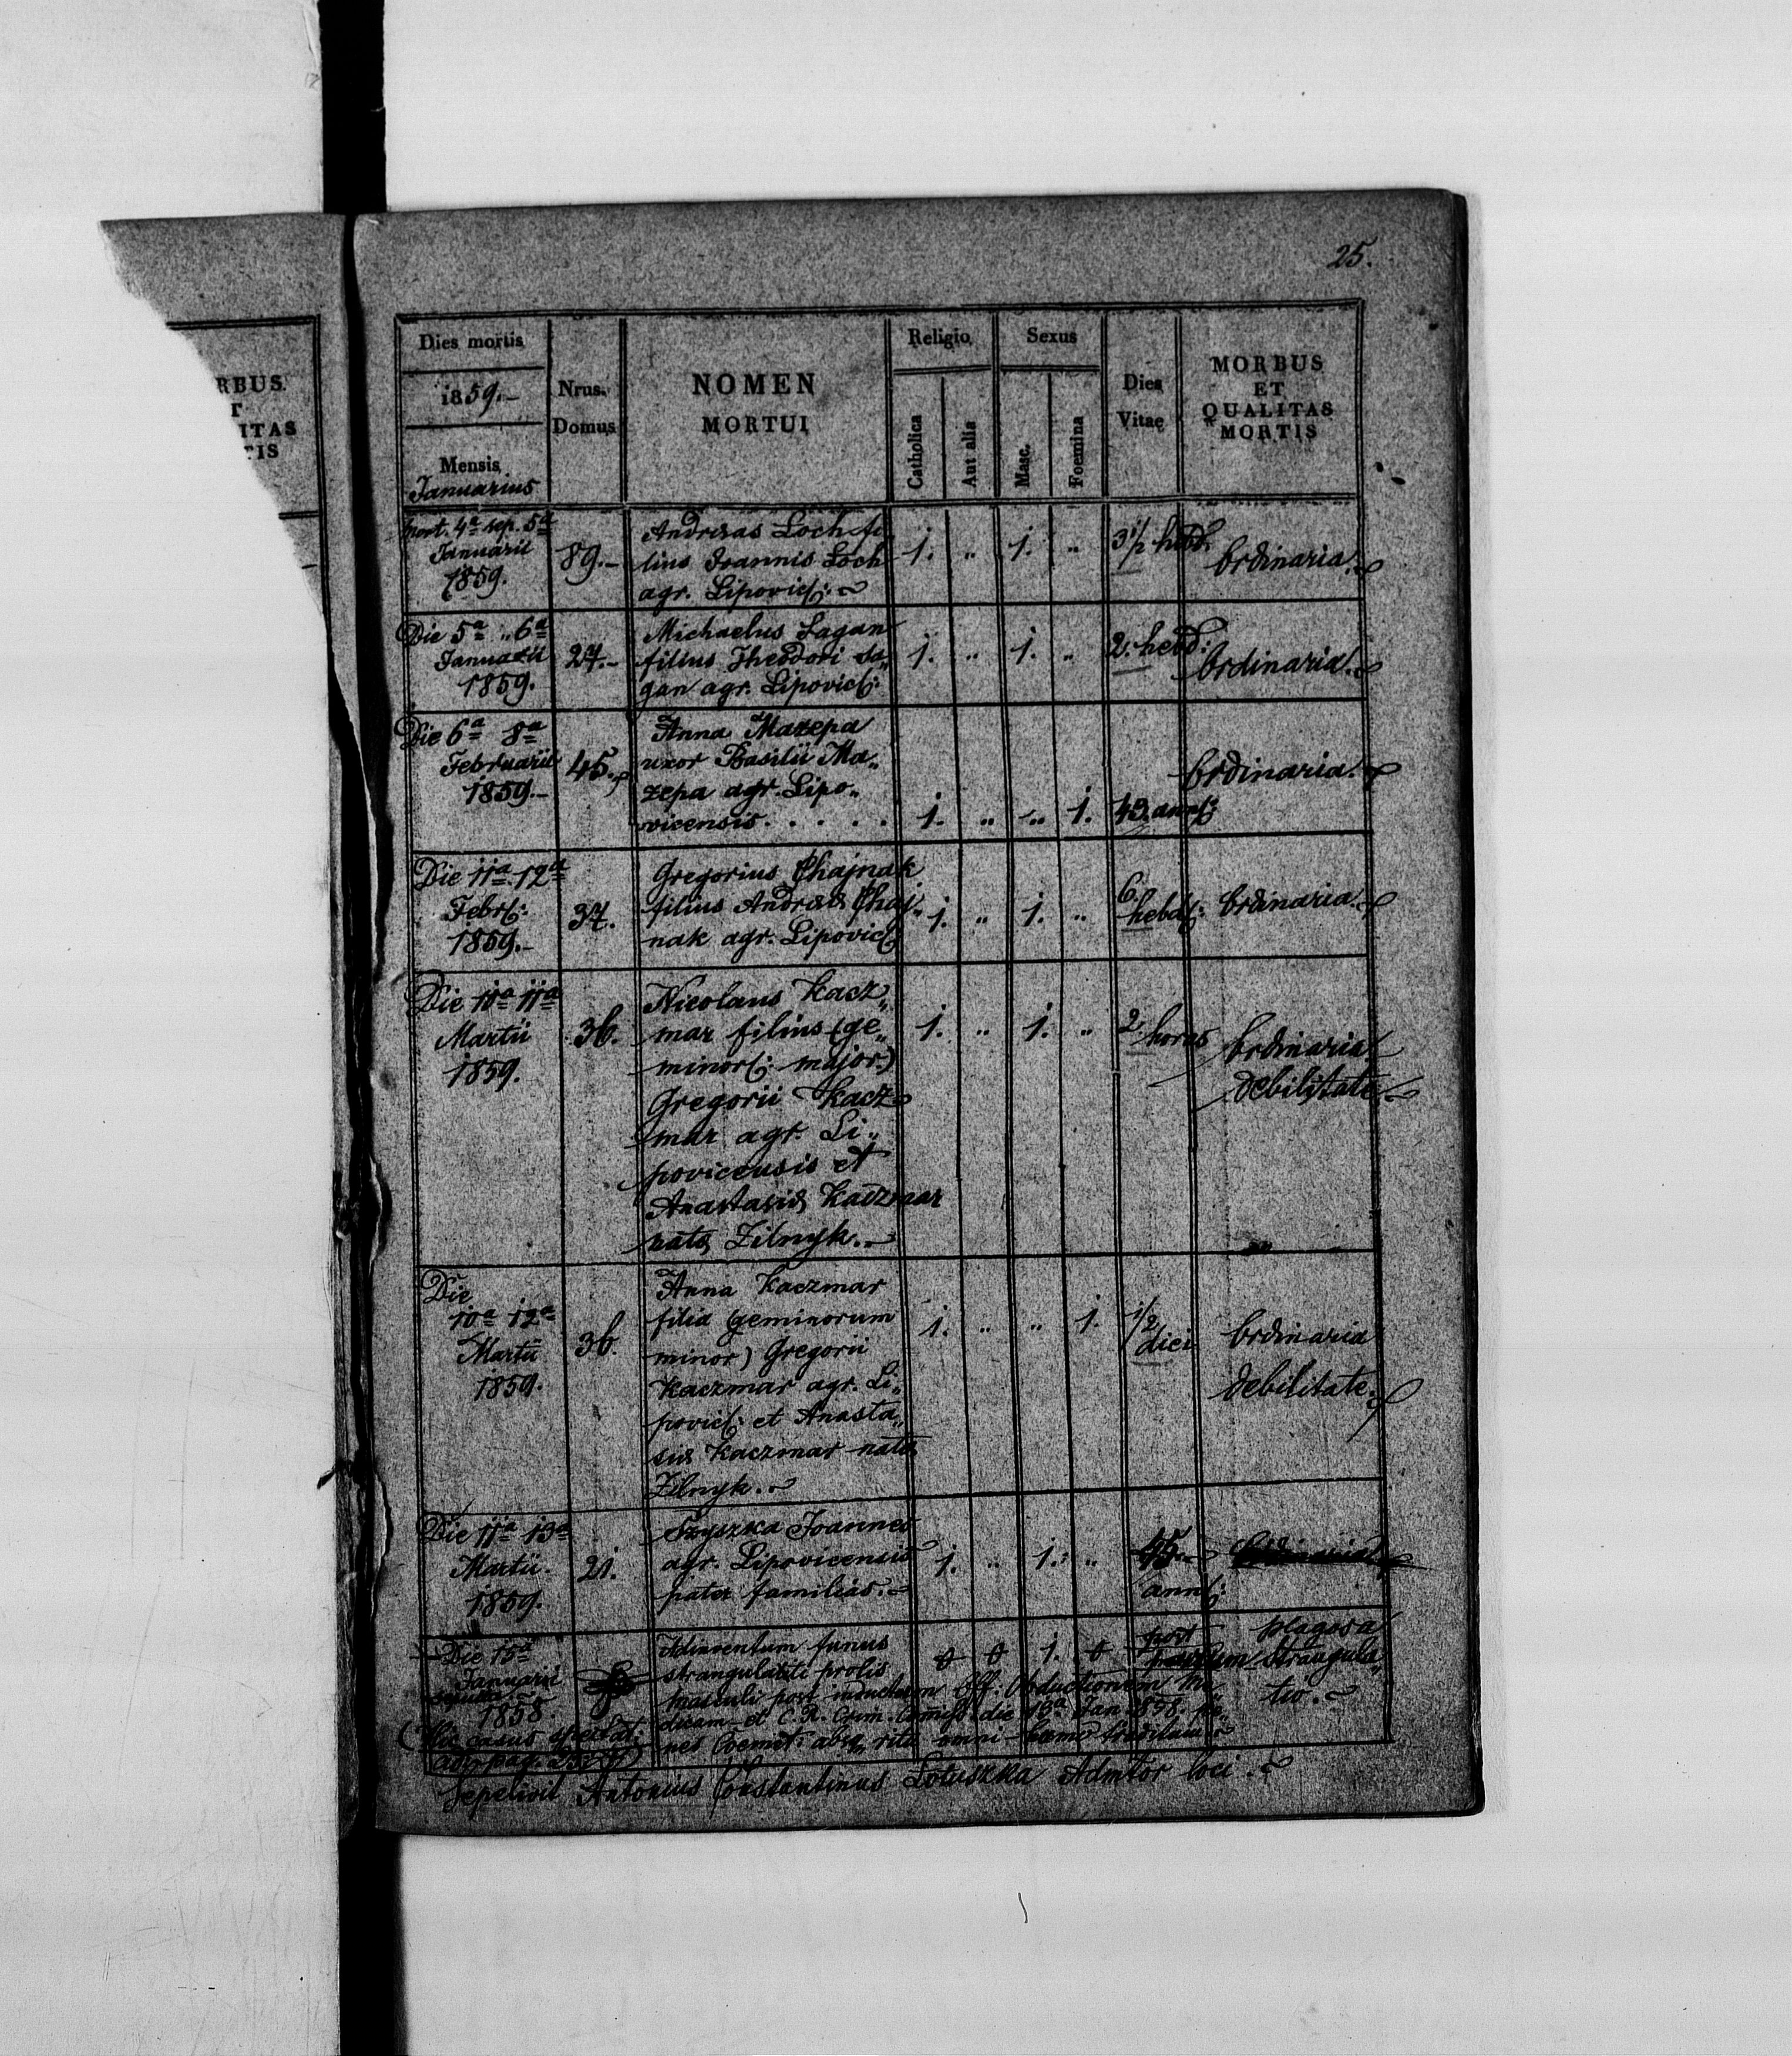 25.
RBUS
T
ITAS
TIS
Dies mortis
1859.-
Mensis
Januarius
Nrus.
Domus
NOMEN
MORTUI
Religio
Catholica
Aut alia
Sexus
Masc.
Foemina
Dies
Vitae
MORBUS
ET
QUALITAS
MORTIS
mort. 4a sep. 5a
Januarii
1859.
89.-
Andreas Loch fi
lius Joannis Loch
agr. Lipovic:
1. „ 1. „
3 1/2 hebd.
Ordinaria.
Die 5a „ 6a
Januarii
1859.
27.-
Michaelus Sagan
filius Theodori Sa„
gan agr. Lipovic:
1. „ 1. „
2. hebd:
Ordinaria.
Die 6a 8a
Februarii
1859.-
45.
Anna Mazepa
uxor Basilii Ma„
zepa agr. Lipo„
vicensis. . . . .
1. „ „ 1.
Ordinaria.
Die 11a 12a
Febr:
1859.-
37.
Gregorius Chajnak
filius Andreae Chaj„
nak agr. Lipovic:
1. „ 1. „
6.
hebd:
Ordinaria.
Die 10a 11a
Martii
1859.
36.
Nicolaus Kacz„
mar filius (ge„
minor: major.)
Gregorii Kacz
mar agr. Li„
povicensis et
Anastasiae Kaczmar
natae Zilnyk.
1. „ 1. „
2
horas
Ordinaria
debilitate
Die
10a 12a
Martii
1859.
36.
Anna Kaczmar
filia (geminorum
minor) Gregorii
Kaczmar agr. Li„
povic: et Anasta„
siae Kaczmar natae
Zilnyk.
1. „ „ 1.
1/2
diei
Ordinaria
debilitate.
Die 11a 13a
Martii.
1859.
21.
Szyszka Joannes
agr. Lipovicensis
pater familias.
1. „ 1. „
45.
ann:
Ordinaria
Die 15a
Januarii
1858.
Adinventum funus
strangulati prolis
masculi post inductam Off. Obductionem Me„
dicam et C. R. Crim. Commiss. die 13a Jan. 858. pe„
nes Coemet: absq. ritu omni humo traditum.
0 0 1. 0
post
partum
plagosa
strangula„
tio.
(Hic casus spectat
ad pag.
Sepelivit Antonius Constantinus Lotuszka Admtor loci.